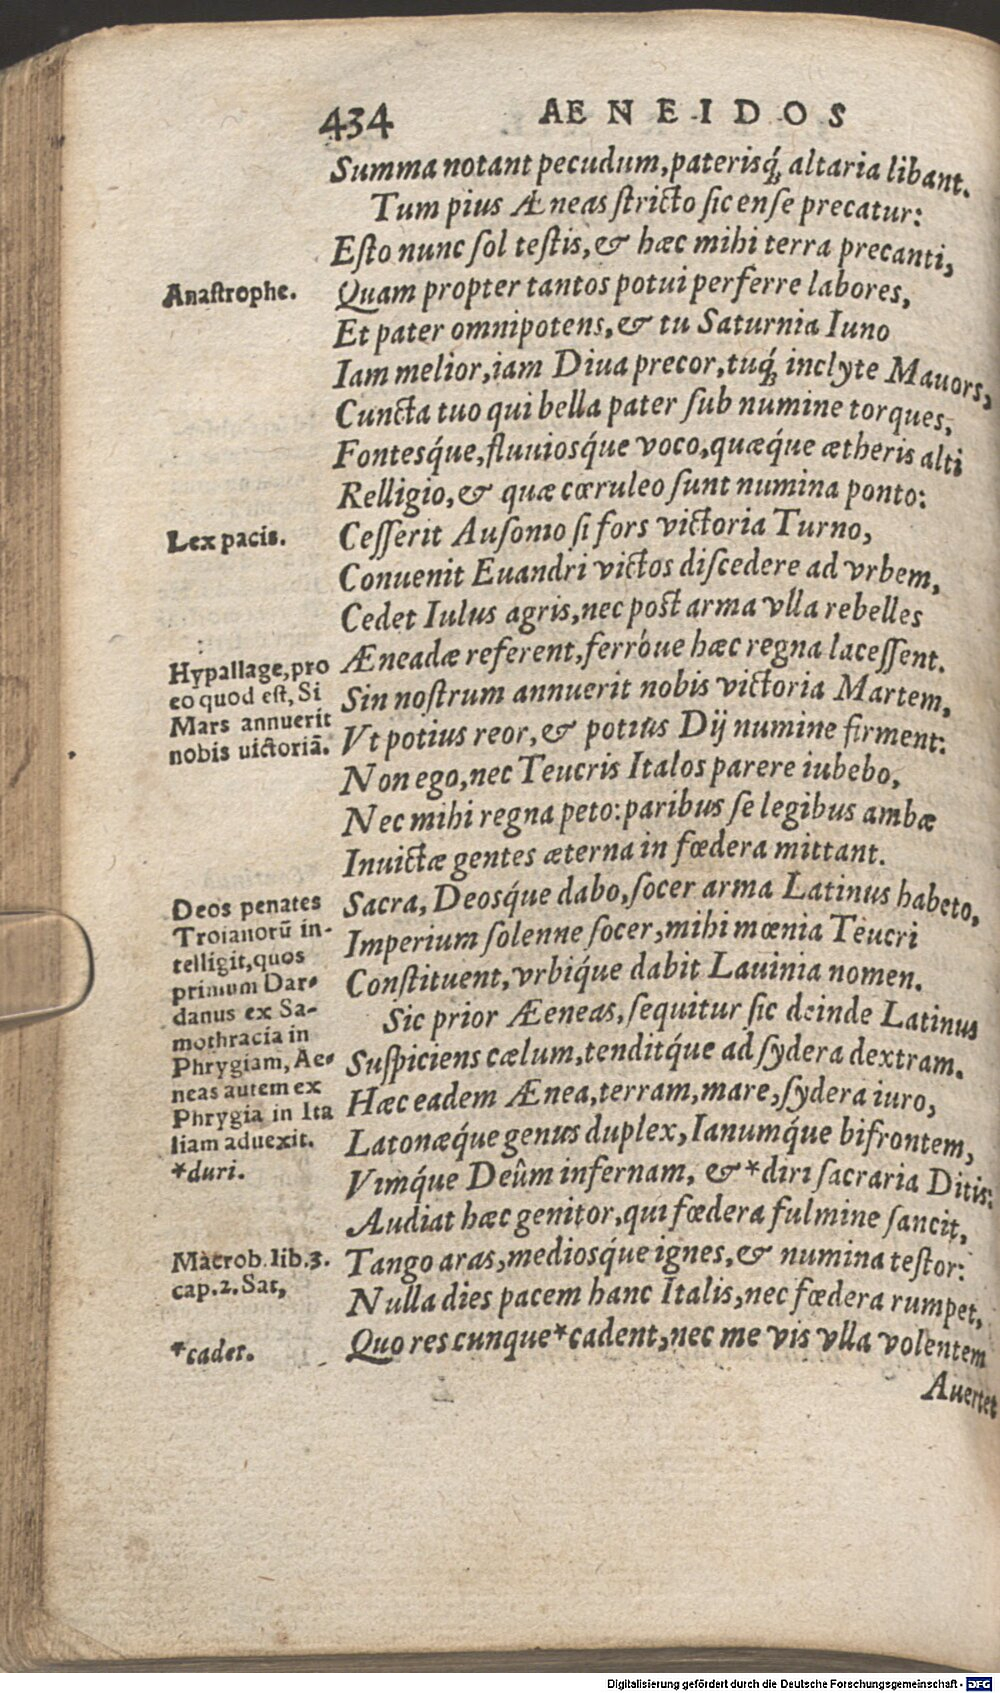 434 AENEIDOS
Summa notant pecudum, paterisq́; altaria libant.
Tum pius Æneas stricto sic ense precatur:
Esto nunc sol testis, & hæc mihi terra precanti,
Anastrophe.
Quam propter tantos potui perferre labores,
Et pater omnipotens, & tu Saturnia Iuno
Iam melior, iam Diua precor, tuq́; inclyte Mauors,
Cuncta tuo qui bella pater sub numine torques,
Fontesq́ue, fluuiosq́ue voco, quæq́ue ætheris alti
Relligio, & quæ cœruleo sunt numina ponto:
Lex pacis.
Cesserit Ausonio si fors victoria Turno,
Conuenit Euandri victos discedere ad vrbem,
Cedet Iulus agris, nec post arma vlla rebelles
Æneadæ referent, ferróue hæc regna lacessent.
Hypallage, pro
eo quod est, Si
Mars annuerit
nobis uictoriã.
Sin nostrum annuerit nobis victoria Martem,
Vt potius reor, & potius Dij numine firment:
Non ego, nec Teucris Italos parere iubebo,
Nec mihi regna peto: paribus se legibus ambæ
Inuictæ gentes æterna in fœdera mittant.
Deos penates
Troianorũ in-
telligit, quos
primum Dar-
danus ex Sa-
mothracia in
Phrygiam, Ae-
neas autem ex
Phrygia in Ita
liam aduexit.
Sacra, Deosq́ue dabo, socer arma Latinus habeto,
Imperium solenne socer, mihi mœnia Teucri
Constituent, vrbiq́ue dabit Lauinia nomen.
Sic prior Æeneas, sequitur sic deinde Latinus
Suspiciens cælum, tenditq́ue ad sydera dextram.
Hæc eadem Ænea, terram, mare, sydera iuro,
Latonæq́ue genus duplex, Ianumq́ue bifrontem,
*duri.
Vimq́ue Deûm infernam, & *diri sacraria Ditis:
Audiat hæc genitor, qui fœdera fulmine sancit,
Macrob. lib. 3.
cap. 2. Sat,
Tango aras, mediosq́ue ignes, & numina testor:
Nulla dies pacem hanc Italis, nec fœdera rumpet,
*cadet.
Quo res cunque *cadent, nec me vis vlla volentem
Auertet
Digitalisierung gefördert durch die Deutsche Forschungsgemeinschaft - DFG